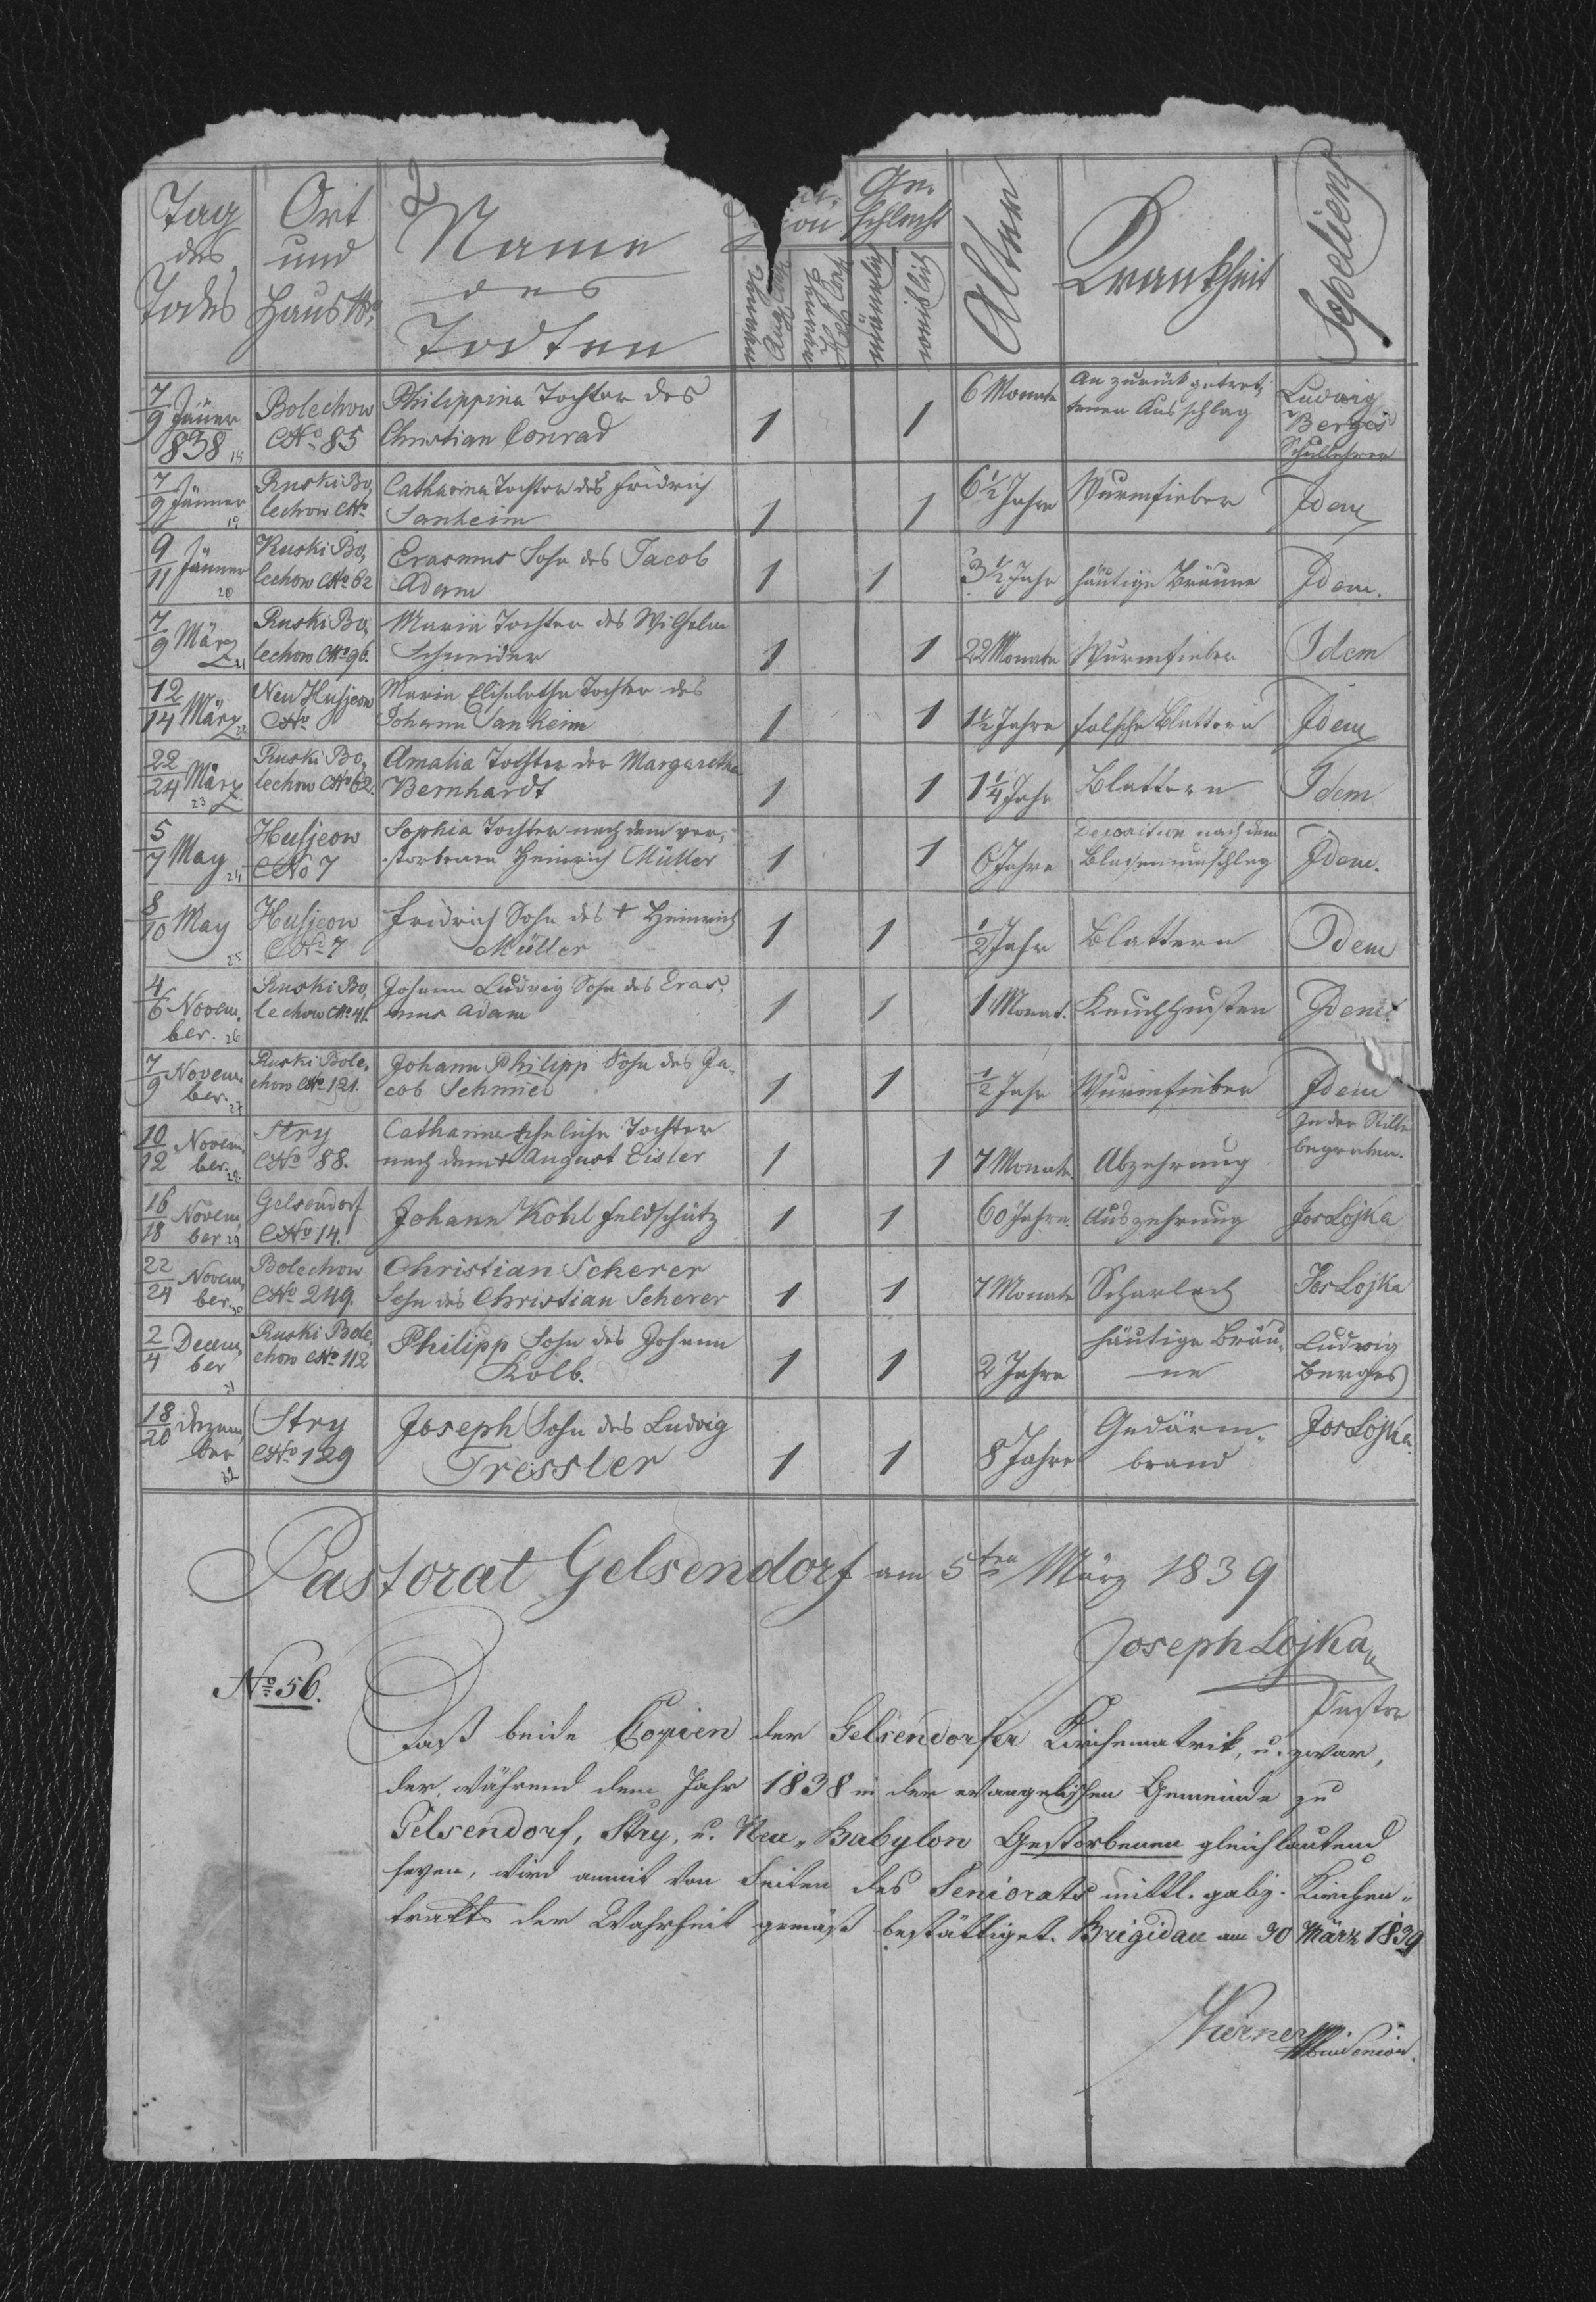 2
Tag des Todes
Ort und Haus No.
Name des Todten
Ge-
schlecht
männlich
weiblich
Alter
Krankheit
Sepeliens
7/9 Jäner 838 18 Bolechow No. 85 Philippina Tochter des Christian Conrad 1 1 6 Monate An zurückgetret, tenen Ausschlag Ludwig Berges Schullehrer
7/9 Jänner 19 Ruski Bo, lechow No. Catharina Tochter des Fridrich Sanheim 1 1 6 1/2 Jahre Wurmfieber Idem
9/11 Jänner 20 Ruski Bo, lechow No. 62 Erasmus Sohn des Jacob Adam 1 1 3 1/2 Jahr häutige Bräune Idem.
7/9 März 21 Ruski Bo, lechow No. 96. Maria Tochter des Wilhelm Schneider 1 1 22 Monate Wurmfieber Idem
12/14 März 22 Neu Husjeow No. Maria Elisabetha Tochter des Johann Sanheim 1 1 1 1/2 Jahre falsche Blattern Idem
22/24 März 23 Ruski Bo, lechow No. 62. Amalia Tochter der Margaretha Bernhardt 1 1 1 1/4 Jahr Blattern Idem
5/7 May 24 Husjeow No 7 Sophia Tochter nach dem ver, storbenen Heinrich Müller 1 1 6 Jahre nach dem Idem.
8/10 May 25 Husjeow No. 7 Fridrich Sohn des + Heinrich Müller 1 1 1/2 Jahr Blattern Idem
4/6 Novem, ber. 26 Ruski Bo, lechow No. 41. Johann Ludwig Sohn des Eras, mus Adam 1 1 1 Monat. Keuchhusten Idem
7/9 Novem, ber. 27 Ruski Bole, chow No. 121. Johann Philipp Sohn des Ja, cob Schmied 1 1 1/2 Jahr Wurmfieber Idem
10/12 Novem, ber. 28 Stry No. 88. Catharina eheliche Tochter nach dem + August Eisler 1 1 7 Monate Abzehrung In der Stille begraben.
16/18 Novem, ber 29 Gelsendorf No. 14. Johann Kohl Feldschütz 1 1 60 Jahre. Auszehrung Jos Lojka
22/24 Novem, ber. 30 Bolechow No. 249. Christian Scherer Sohn des Christian Scherer 1 1 7 Monate Scharlach Jos Lojka
2/4 Decem, ber 31 Ruski Bole, chow No. 112 Philipp Sohn des Johann Kolb. 1 1 2 Jahre häutige Bräu, ne Ludwig Berges
18/20 Dezem, ber 32 Stry No. 129 Joseph Sohn des Ludwig Tressler 1 1 8 Jahre Gedärm, brand Jos Lojka.
Pastorat Gelsendorf am 5ten März 1839
Joseph Lojka
Pastor
No. 56.
Daß beide Copien der Gelsendorfer Kirchematrik, u. zwar,
der, während dem Jahr 1838 in der evangelischen Gemeinde zu
Gelsendorf, Stry, u. Neu-Babylon Gestorbenen gleichlautend
seyen, wird anmit von Seiten des Seniorats mittl. galiz. Kirchen-
trakts der Wahrheit gemäß bestättiget. Brigidau am 30 März 1839